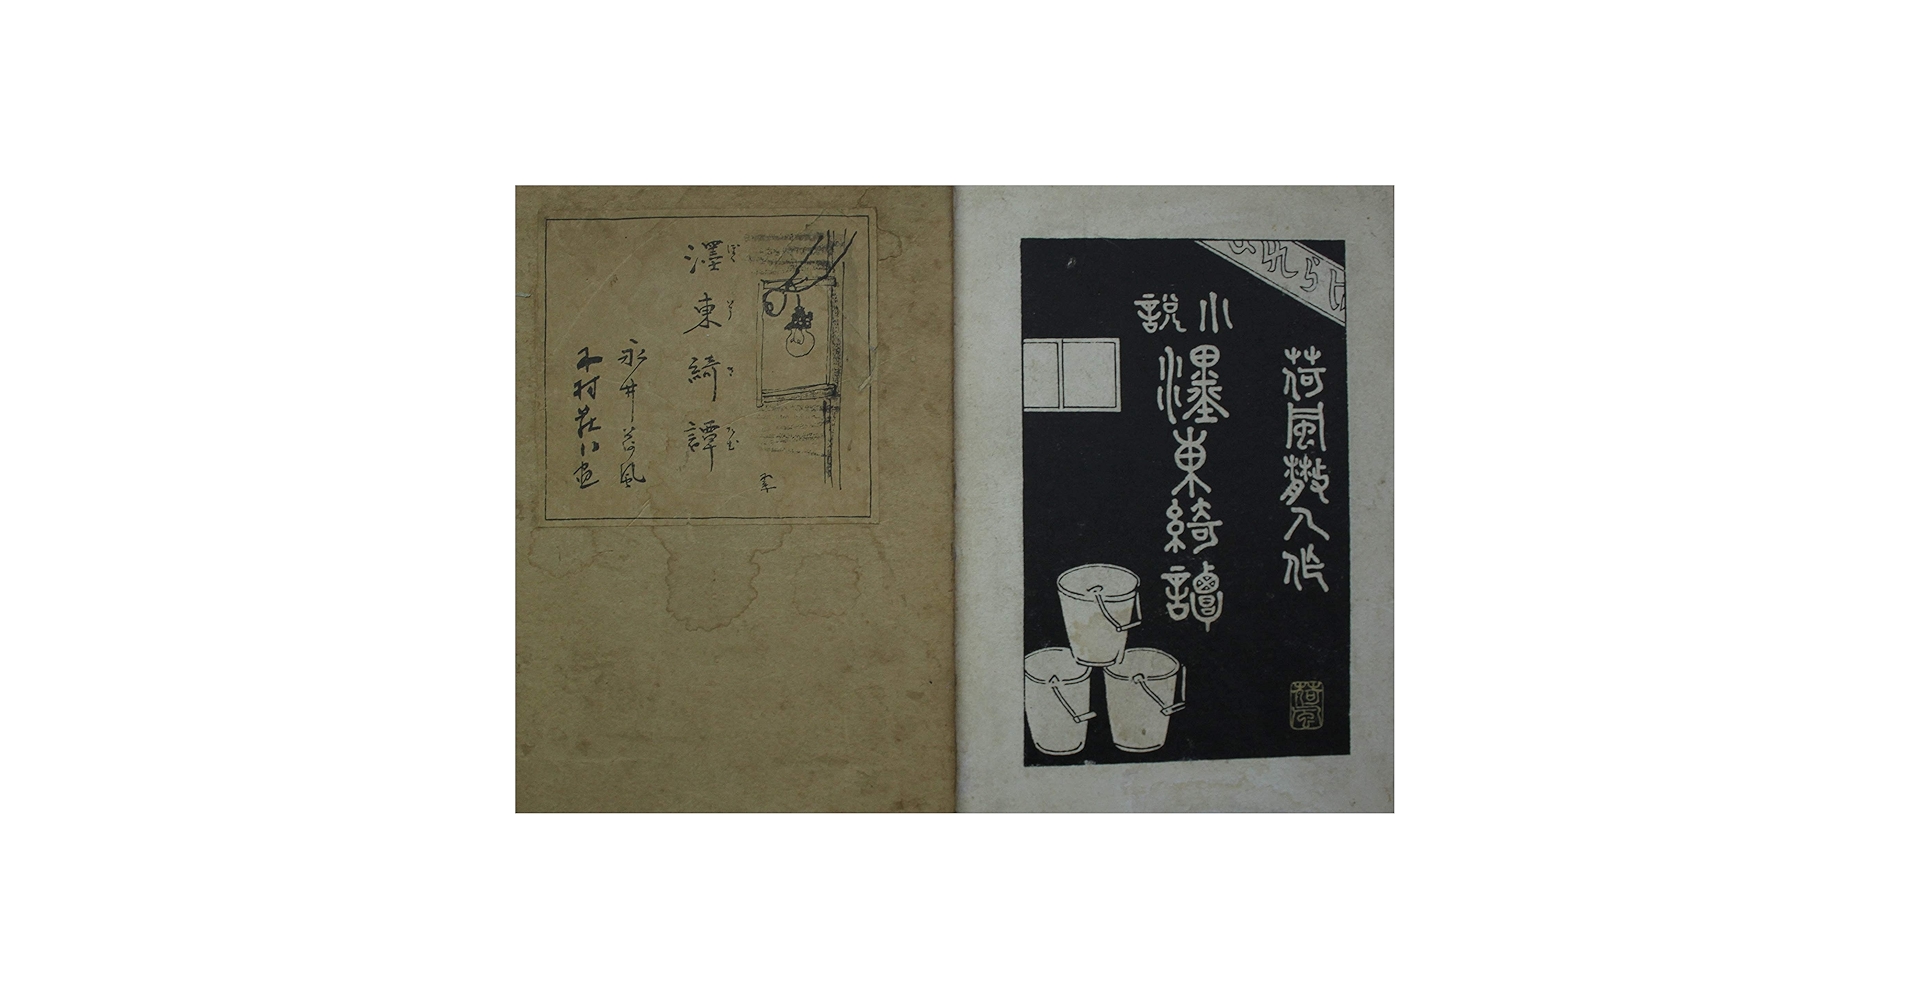 濹東綺譚
ぼく とう き だむ
永井荷風
木村荘八画
荷風散人作
小説
濹東綺譚
荷風